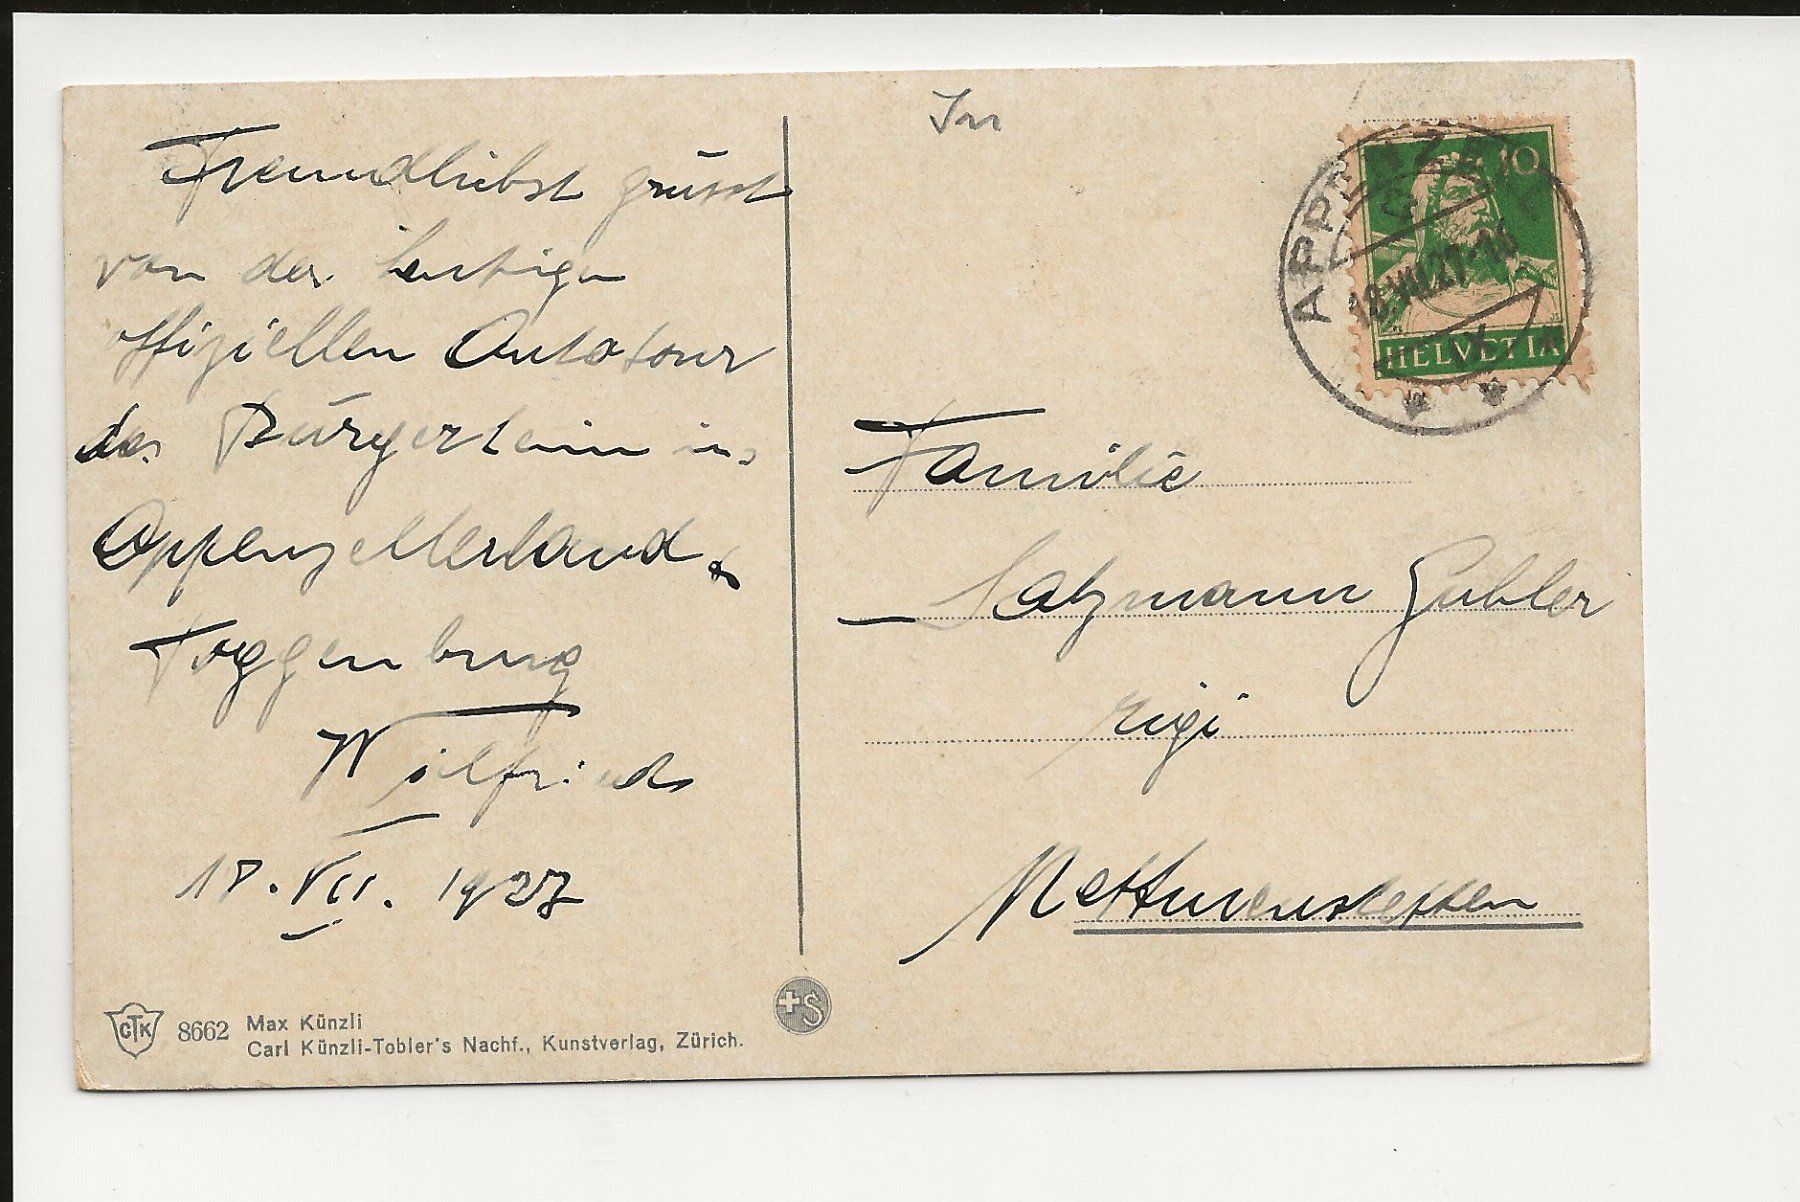 Freundlichst grüsst
von der heutigen
offiziellen Autotour
des Bürgerheim ins
Appenzellerland &
Toggenburg
Wilfried
18. VII. 1927
8662 Max Künzli
Carl Künzli-Tobler's Nachf., Kunstverlag, Zürich.
CTK
+S
APPENZELL
18.VII.27-14
10
HELVETIA
Familie
Salzmann Gubler
Rigi
Mettmenstetten